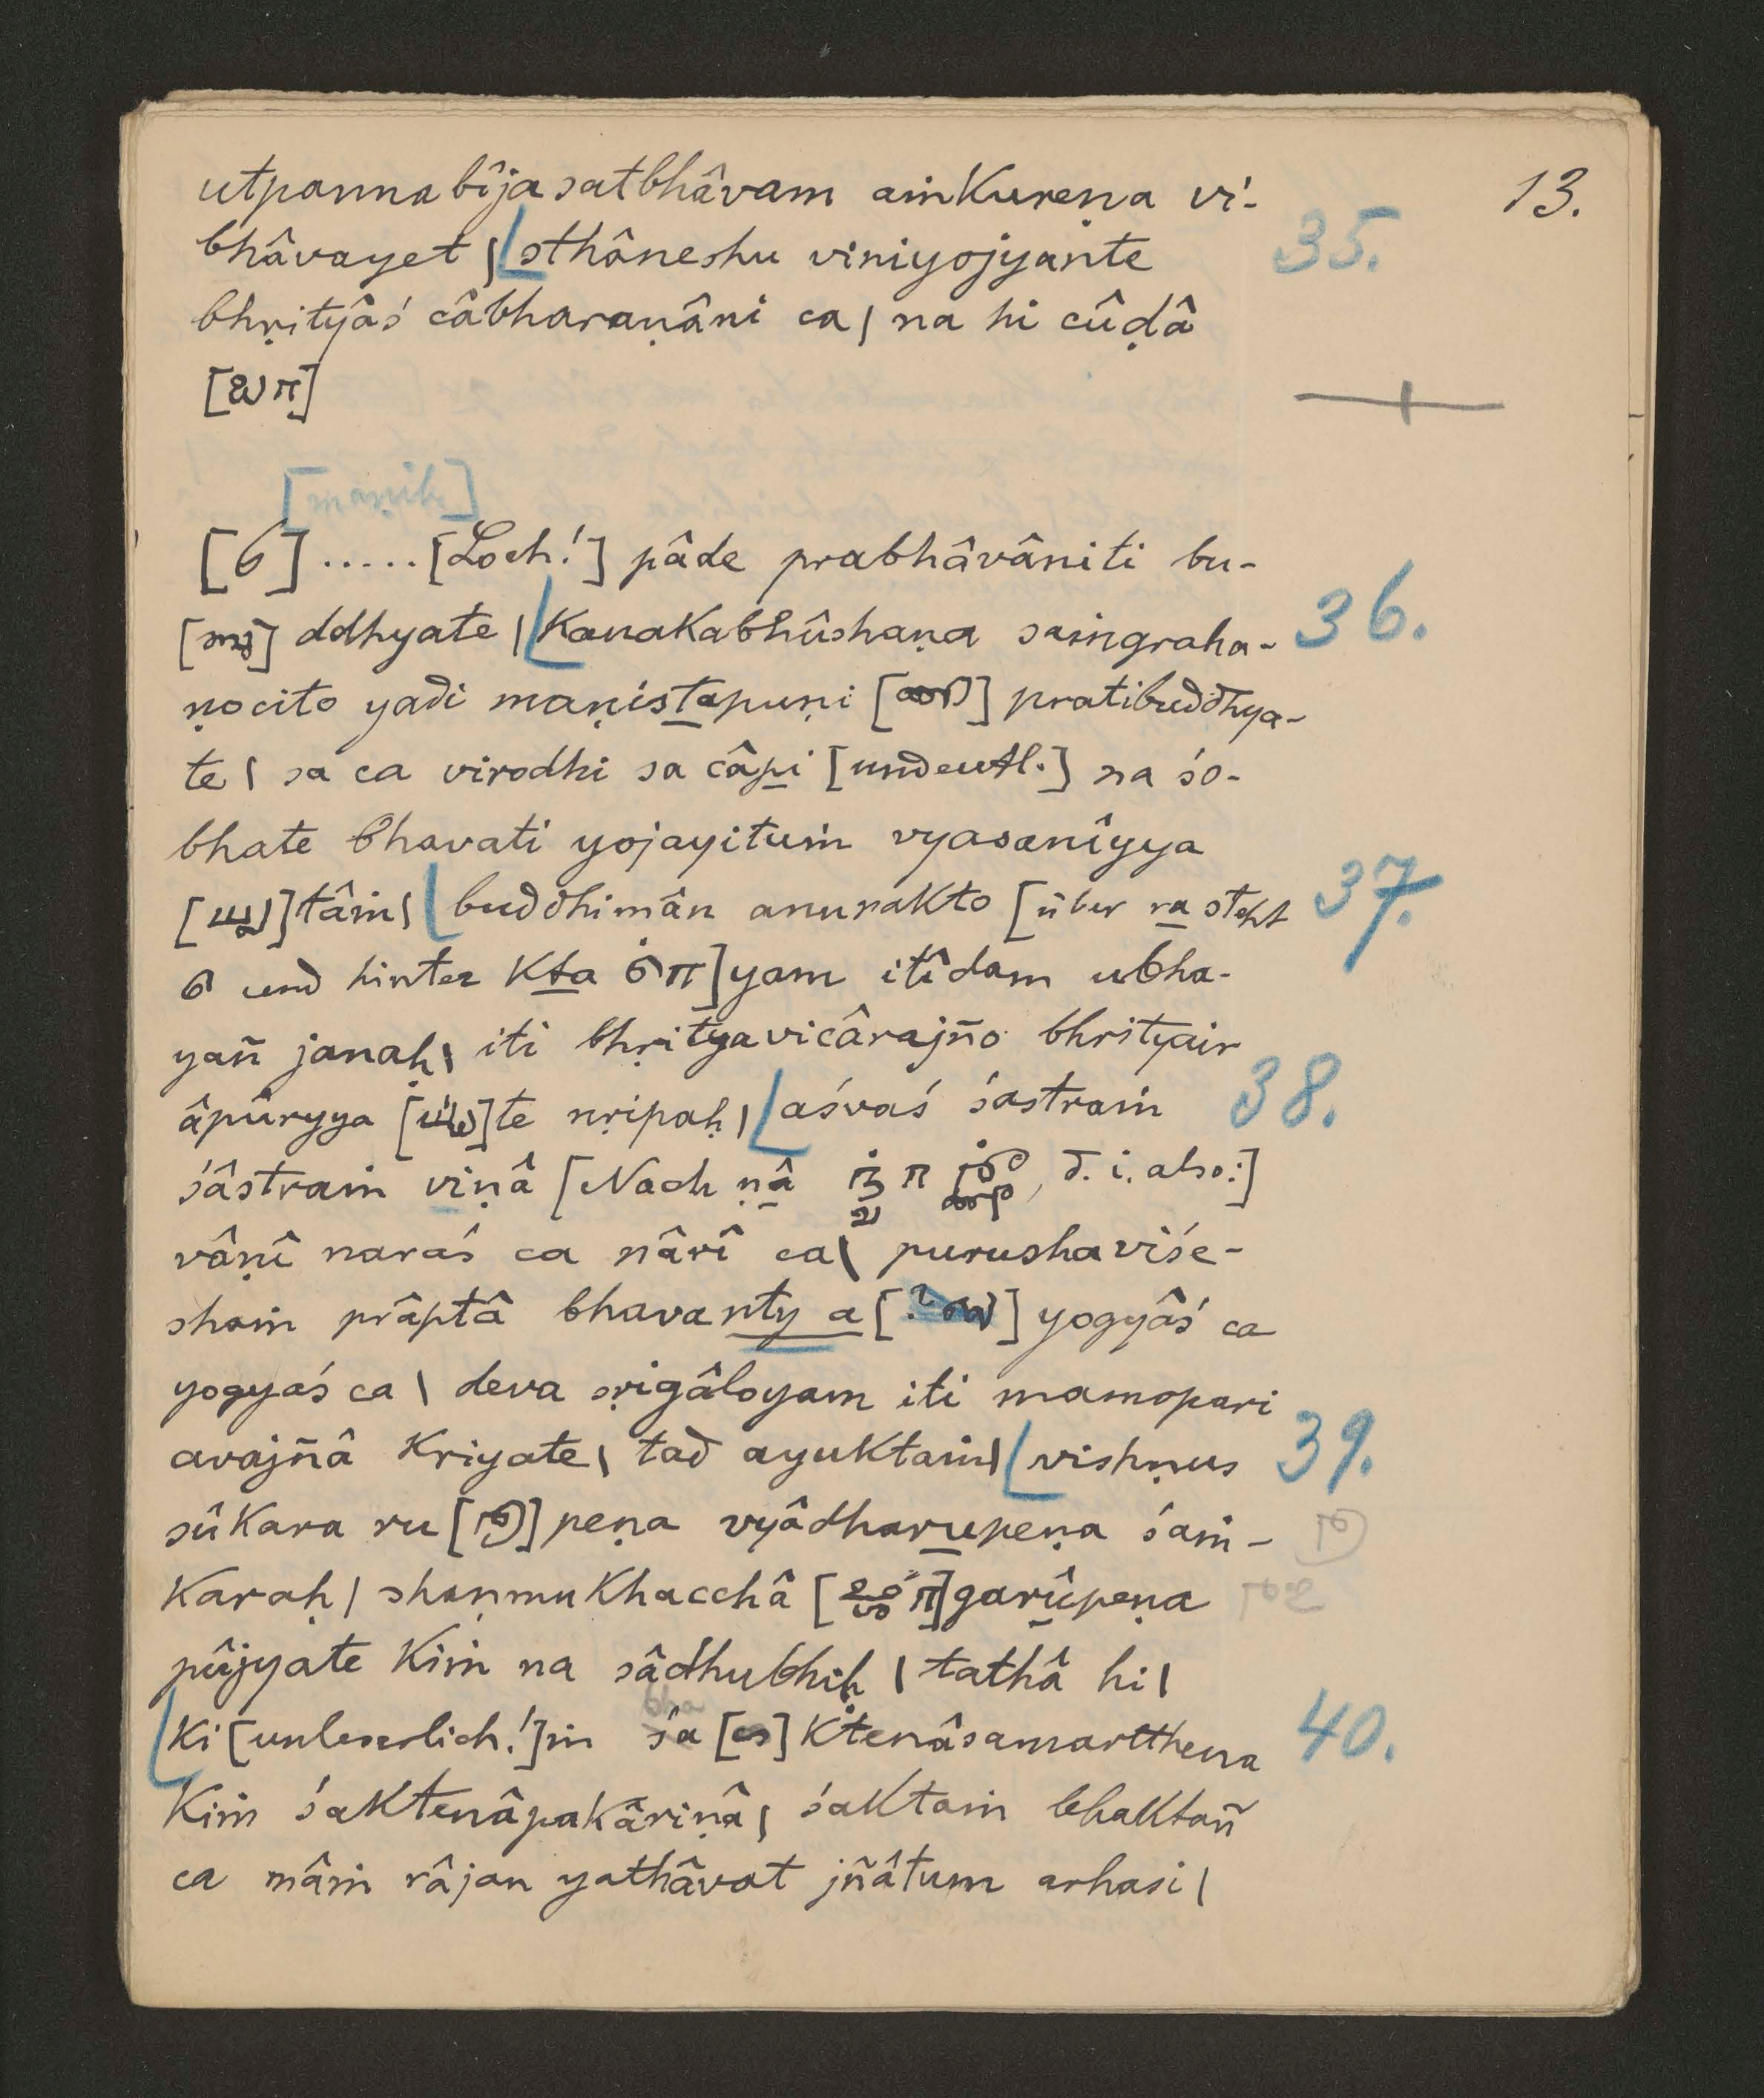 13.
utpannabîjasatbhâvam aṁkureṇa vi-
bhâvayet | sthâneshu viniyojyante 35.
bhṛityâś câbharaṇâni ca | na hi cûḍâ
[maṇiḥ]
[6] ..... [Loch!] pâde prabhâvâniti bu-
ddhyate | kanakabhûshaṇa saṁgraha- 36.
ṇocito yadi maṇistapuṇi pratibuddhya-
te | sa ca virodhi sa câpi [undeutl.] na śo-
bhate bhavati yojayituṁ vyasanîyya
tâṁ | buddhimân anurakto [über ra steht 37.
und hinter kta ] yam itîdam ubha-
yañ janaḥ | iti bhṛityavicârajño bhrityair
âpûryya te nṛipaḥ | aśvaś śastraṁ 38.
śâstraṁ viṇâ [Nach ṇâ , d. i. also:]
vâṇî naraś ca nârî ca | purushaviśe-
shaṁ prâptâ bhavanty a [?] yogyâś ca
yogyaś ca | deva sṛigâloyam iti mamopari
avajñâ kriyate | tad ayuktaṁ | vishṇus 39.
sûkara ru peṇa vyâdharupeṇa śaṁ-
karaḥ | shaṇmukhacchâ garûpeṇa
pûjyate kiṁ na sâdhubhiḥ | tathâ hi |
bha
ki [unleserlich!] ṁ śa ktenâsamartthena 40.
kiṁ śaktenâpakâriṇâ | śaktaṁ bhaktañ
ca mâṁ râjan yathâvat jñâtum arhasi |